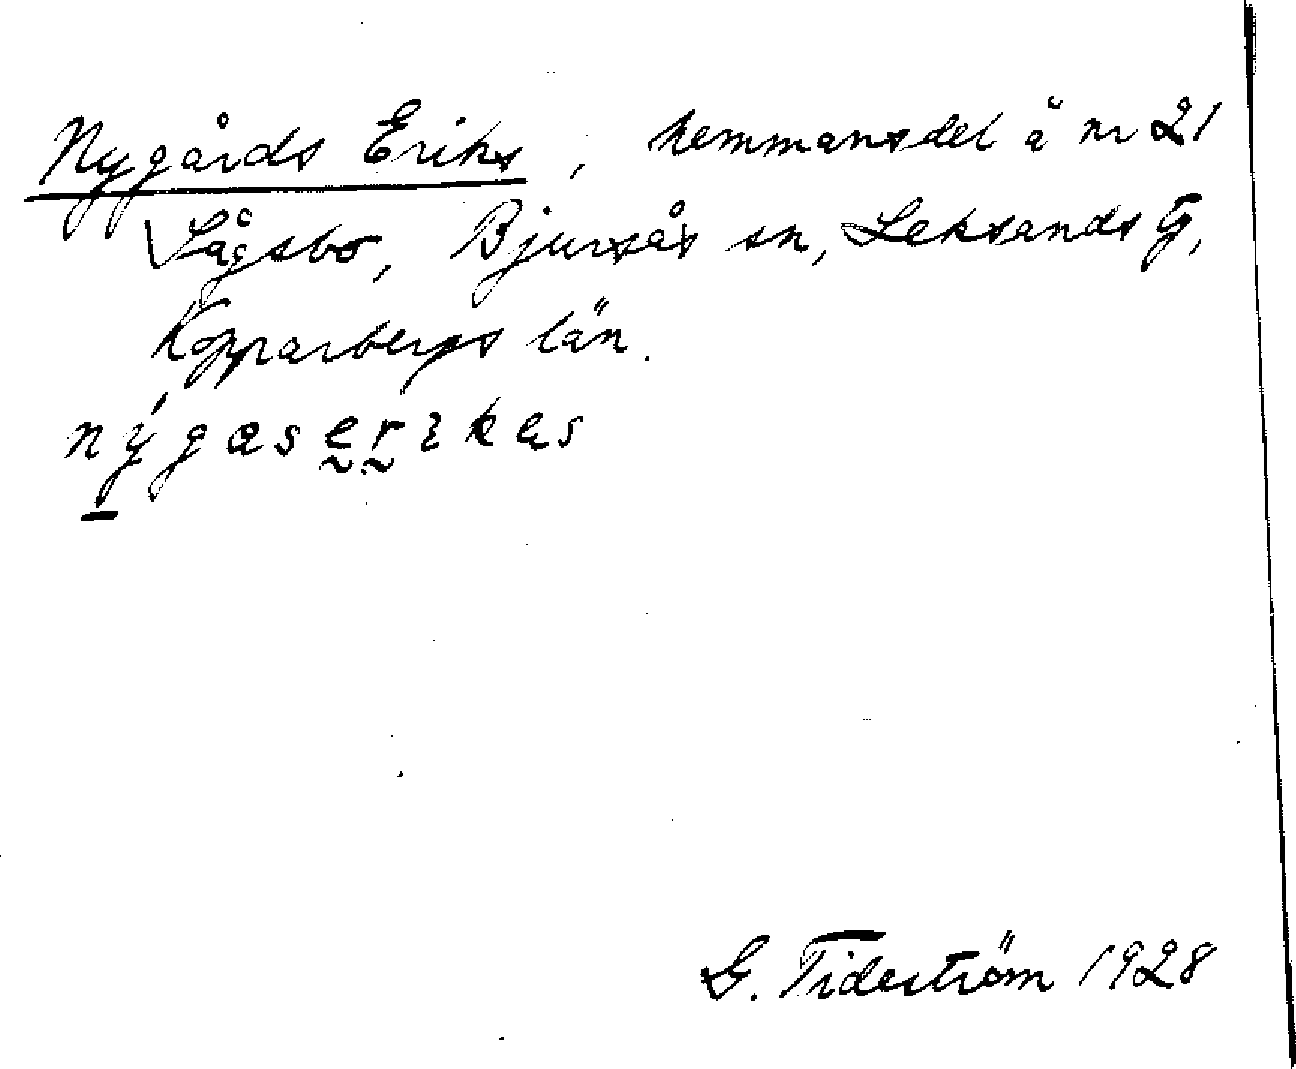 Nygårds Eriks, hemmansdel å nr 21
Lågsbo, Bjursås sn, Leksands tg,
Kopparbergs län.
nýgaserikas
G. Tideström 1928